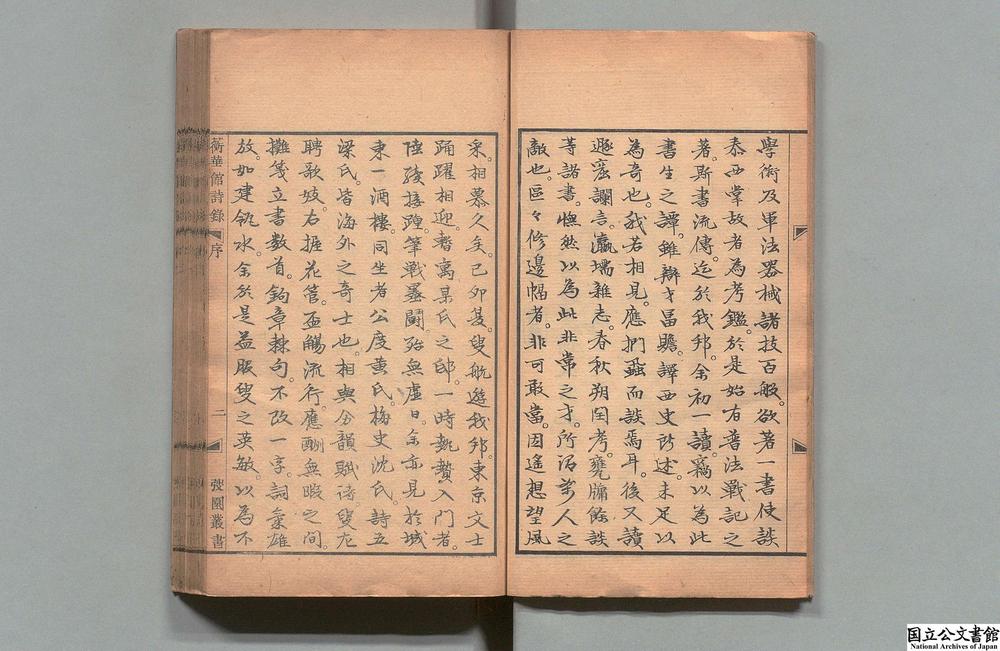 學術及軍法器械諸技百般。欲著一書使談
泰西掌故者為考鑑。於是始有普法戰記之
著。斯書流傳。迄於我邦。余初一讀。竊以為此
書生之譚。雖辯才畐贍。譯西史所述。未足以
為奇也。我若相見。應捫蝨而談焉耳。後又讀
遯窟讕言。瀛壖雜志。春秋朔閏考。甕牖餘談
等諸書。憮然以為此非常之才。所謂萬人之
敵也。區々修邊幅者。非可敢當。因遙想望風
采。相慕久矣。己卯夏。叟航遊我邦。東京文士
踊躍相迎。暫寓某氏之邸。一時執贄入門者。
陸續接踵。筆戰墨鬪。殆無虛日。余亦見於城
東一酒樓。同坐者公度黃氏。梅史沈氏。詩五
梁氏。皆海外之奇士也。相與分韻賦詩。叟左
聘歌妓。右握花管。盃觴流行。應酬無暇之間。
攤箋立書數首。鉤章棘句。不改一字。詞氣雄
放。如建瓴水。余於是益服叟之英敏。以為不
蘅華館詩錄 序 二 弢園叢書
国立公文書館
National Archives of Japan